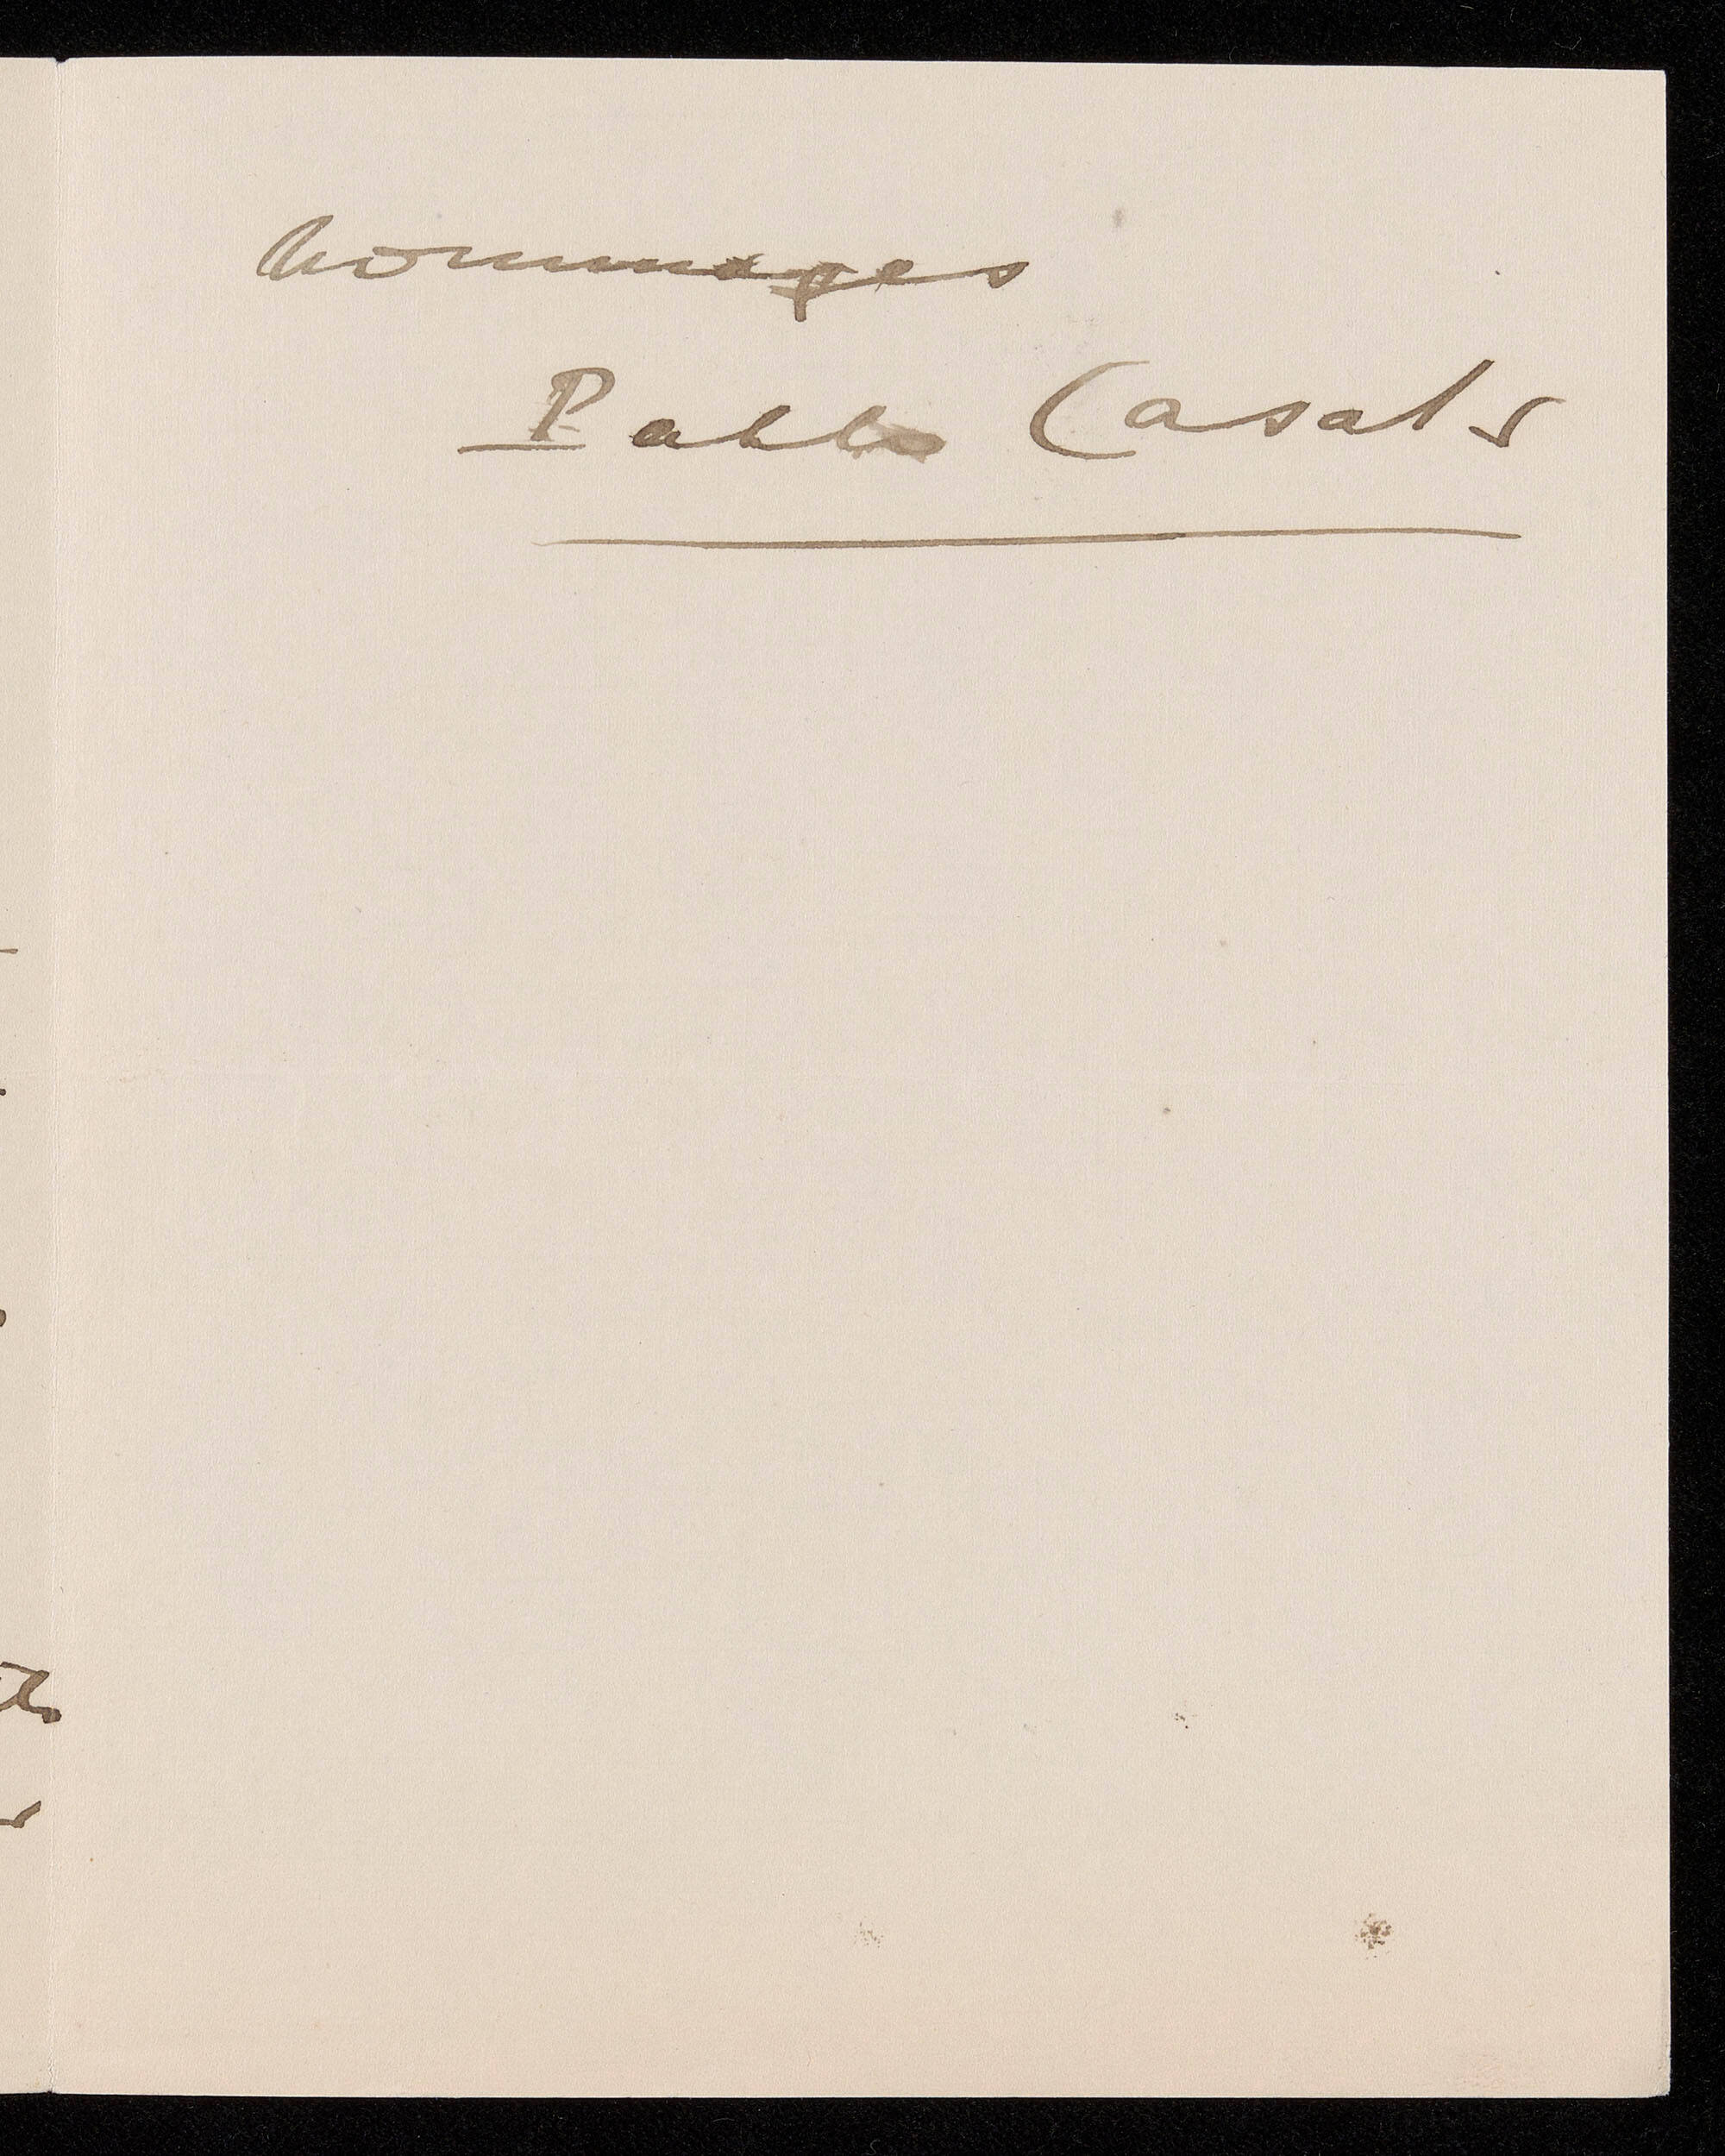 hommages
Pablo Casals